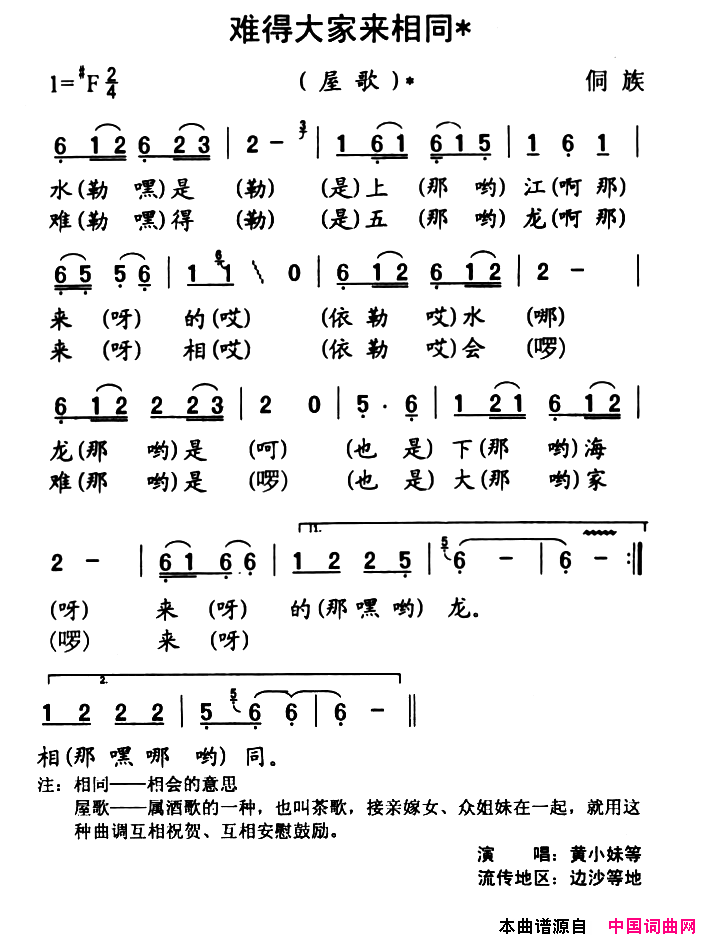 难得大家来相同*
1=#F 2/4 (屋歌)* 侗族
6 1 2 6 2 3 | 2 - 3 | 1 6 1 6 1 5 | 1 6 1 |
水(勒 嘿)是 (勒) (是)上 (那 哟) 江(啊 那)
难(勒 嘿)得 (勒) (是)五 (那 哟) 龙(啊 那)
6 5 5 6 | 6 1 1 0 | 6 1 2 6 1 2 | 2 - |
来 (呀) 的(哎) (依 勒 哎)水 (哪)
来 (呀) 相(哎) (依 勒 哎)会 (啰)
6 1 2 2 2 3 | 2 0 | 5 · 6 | 1 2 1 6 1 2 |
龙(那 哟)是 (呵) (也 是) 下(那 哟)海
难(那 哟)是 (啰) (也 是) 大(那 哟)家
1.
2 - | 6 1 6 6 | 1 2 2 5 | 5 6 - | 6 - :||
(呀) 来 (呀) 的(那 嘿 哟) 龙。
(啰) 来 (呀)
2.
1 2 2 2 | 5 5 6 6 | 6 - ||
相(那 嘿 哪 哟) 同。
注：相同——相会的意思
屋歌——属酒歌的一种，也叫茶歌，接亲嫁女、众姐妹在一起，就用这
种曲调互相祝贺、互相安慰鼓励。
演 唱：黄小妹等
流传地区：边沙等地
本曲谱源自 中国词曲网